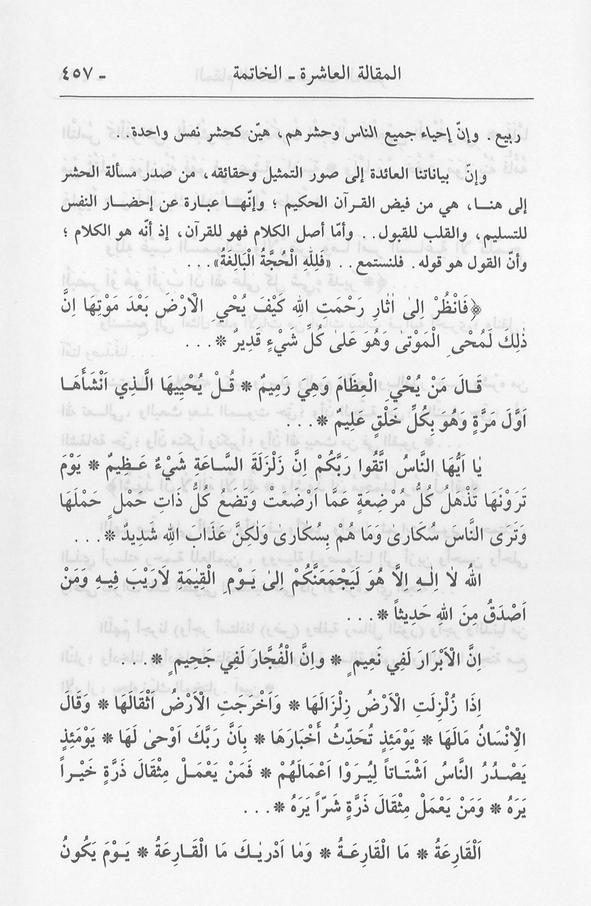 المقالة العاشرة ـ الخاتمة
ـ ٤٥٧
ربيع . وإنّ إحياء جميع الناس وحشرهم ، هيّن كحشر نفس واحدة . .
وإنّ بياناتنا العائدة إلى صور التمثيل وحقائقه ، من صدر مسألة الحشر
إلى هنـا ، هي من فيض القرآن الحكيم ؛ وإنّـها عبارة عن إحضار النفس
للتسليم ، والقلب للقبول . . وأمّا أصل الكلام فهو للقرآن ، إذ أنّه هو الكلام ؛
وأنّ القول هو قوله . فلنستمع . . «فَلِلّٰهِ الْحُجَّةُ الْبَالِغَةُ» . . .
﴿فَانْظُرْ اِلىٰ اٰثارِ رَحْمَتِ اللهِ كَيْفَ يُحْيِ الْاَرْضَ بَعْدَ مَوْتِهَا اِنَّ
ذٰلِكَ لَمُحْيِ الْمَوْتٰى وَهُوَ عَلى كُلِّ شَيْءٍ قَدِيرٌ * . . .
قَـالَ مَنْ يُحْيِ الْعِظَامَ وَهِيَ رَمِيمٌ * قُـلْ يُحْيِيهَا الَّـذِي اَنْشَأَهَـا
اَوَّلَ مَرَّةٍ وَهُوَ بِكُلِّ خَلْقٍ عَلِيمٌ * . . .
يٰا اَيُّهَا النَّاسُ اتَّقُوا رَبَّكُمْ اِنَّ زَلْزَلَةَ السَّـاعَةِ شَيْءٌ عَـظِيمٌ * يَوْمَ
تَرَوْنَهَا تَذْهَلُ كُلُّ مُرْضِعَةٍ عَمَّا اَرْضَعَتْ وَتَضَعُ كُلُّ ذَاتِ حَمْلٍ حَمْلَهَا
وَتَرَى النَّاسَ سُكَارىٰ وَمَا هُمْ بِسُكارىٰ وَلٰكِنَّ عَذَابَ اللهِ شَدِيدٌ * . . .
اللهُ لاٰ اِلٰـهَ اِلاَّ هُوَ لَيَجْمَعَنَّكُمْ اِلىٰ يَـوْمِ الْقِيٰمَةِ لاَرَيْبَ فِيـهِ وَمَنْ
اَصْدَقُ مِنَ اللهِ حَدِيثاً * . . .
اِنَّ الْاَبْرَارَ لَفِي نَعِيمٍ * وَاِنَّ الْفُجَّارَ لَفِي جَحِيمٍ * . . .
اِذَا زُلْزِلَتِ الْاَرْضُ زِلْزَالَهَا * وَاَخْرَجَتِ الْاَرْضُ اَثْقَالَهَا * وَقَالَ
الْاِنْسَانُ مَالَهَا * يَوْمَئِذٍ تُحَدِّثُ أَخْبَارَهَا * بِاَنَّ رَبَّكَ اَوْحىٰ لَهَا * يَوْمَئِذٍ
يَصْـدُرُ النَّاسُ اَشْتَـاتاً لِيُرَوْا اَعْمَالَهُمْ * فَمَنْ يَعْمَـلْ مِثْقَالَ ذَرَّةٍ خَيْـراً
يَرَهُ * وَمَنْ يَعْمَلْ مِثْقَالَ ذَرَّةٍ شَرّاً يَرَهُ * . . .
اَلْقَارِعَةُ * مَا الْقَارِعَـةُ * وَمٰا اَدْرٰيكَ مَا الْقَـارِعَةُ * يَـوْمَ يَكُونُ